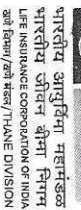 भारतीय आयुर्विमा महामंडळ
भारतीय जीवन बीमा निगम
LIFE INSURANCE CORPORATION OF INDIA
ठाणे विभाग/ठाणे मंडल/THANE DIVISON